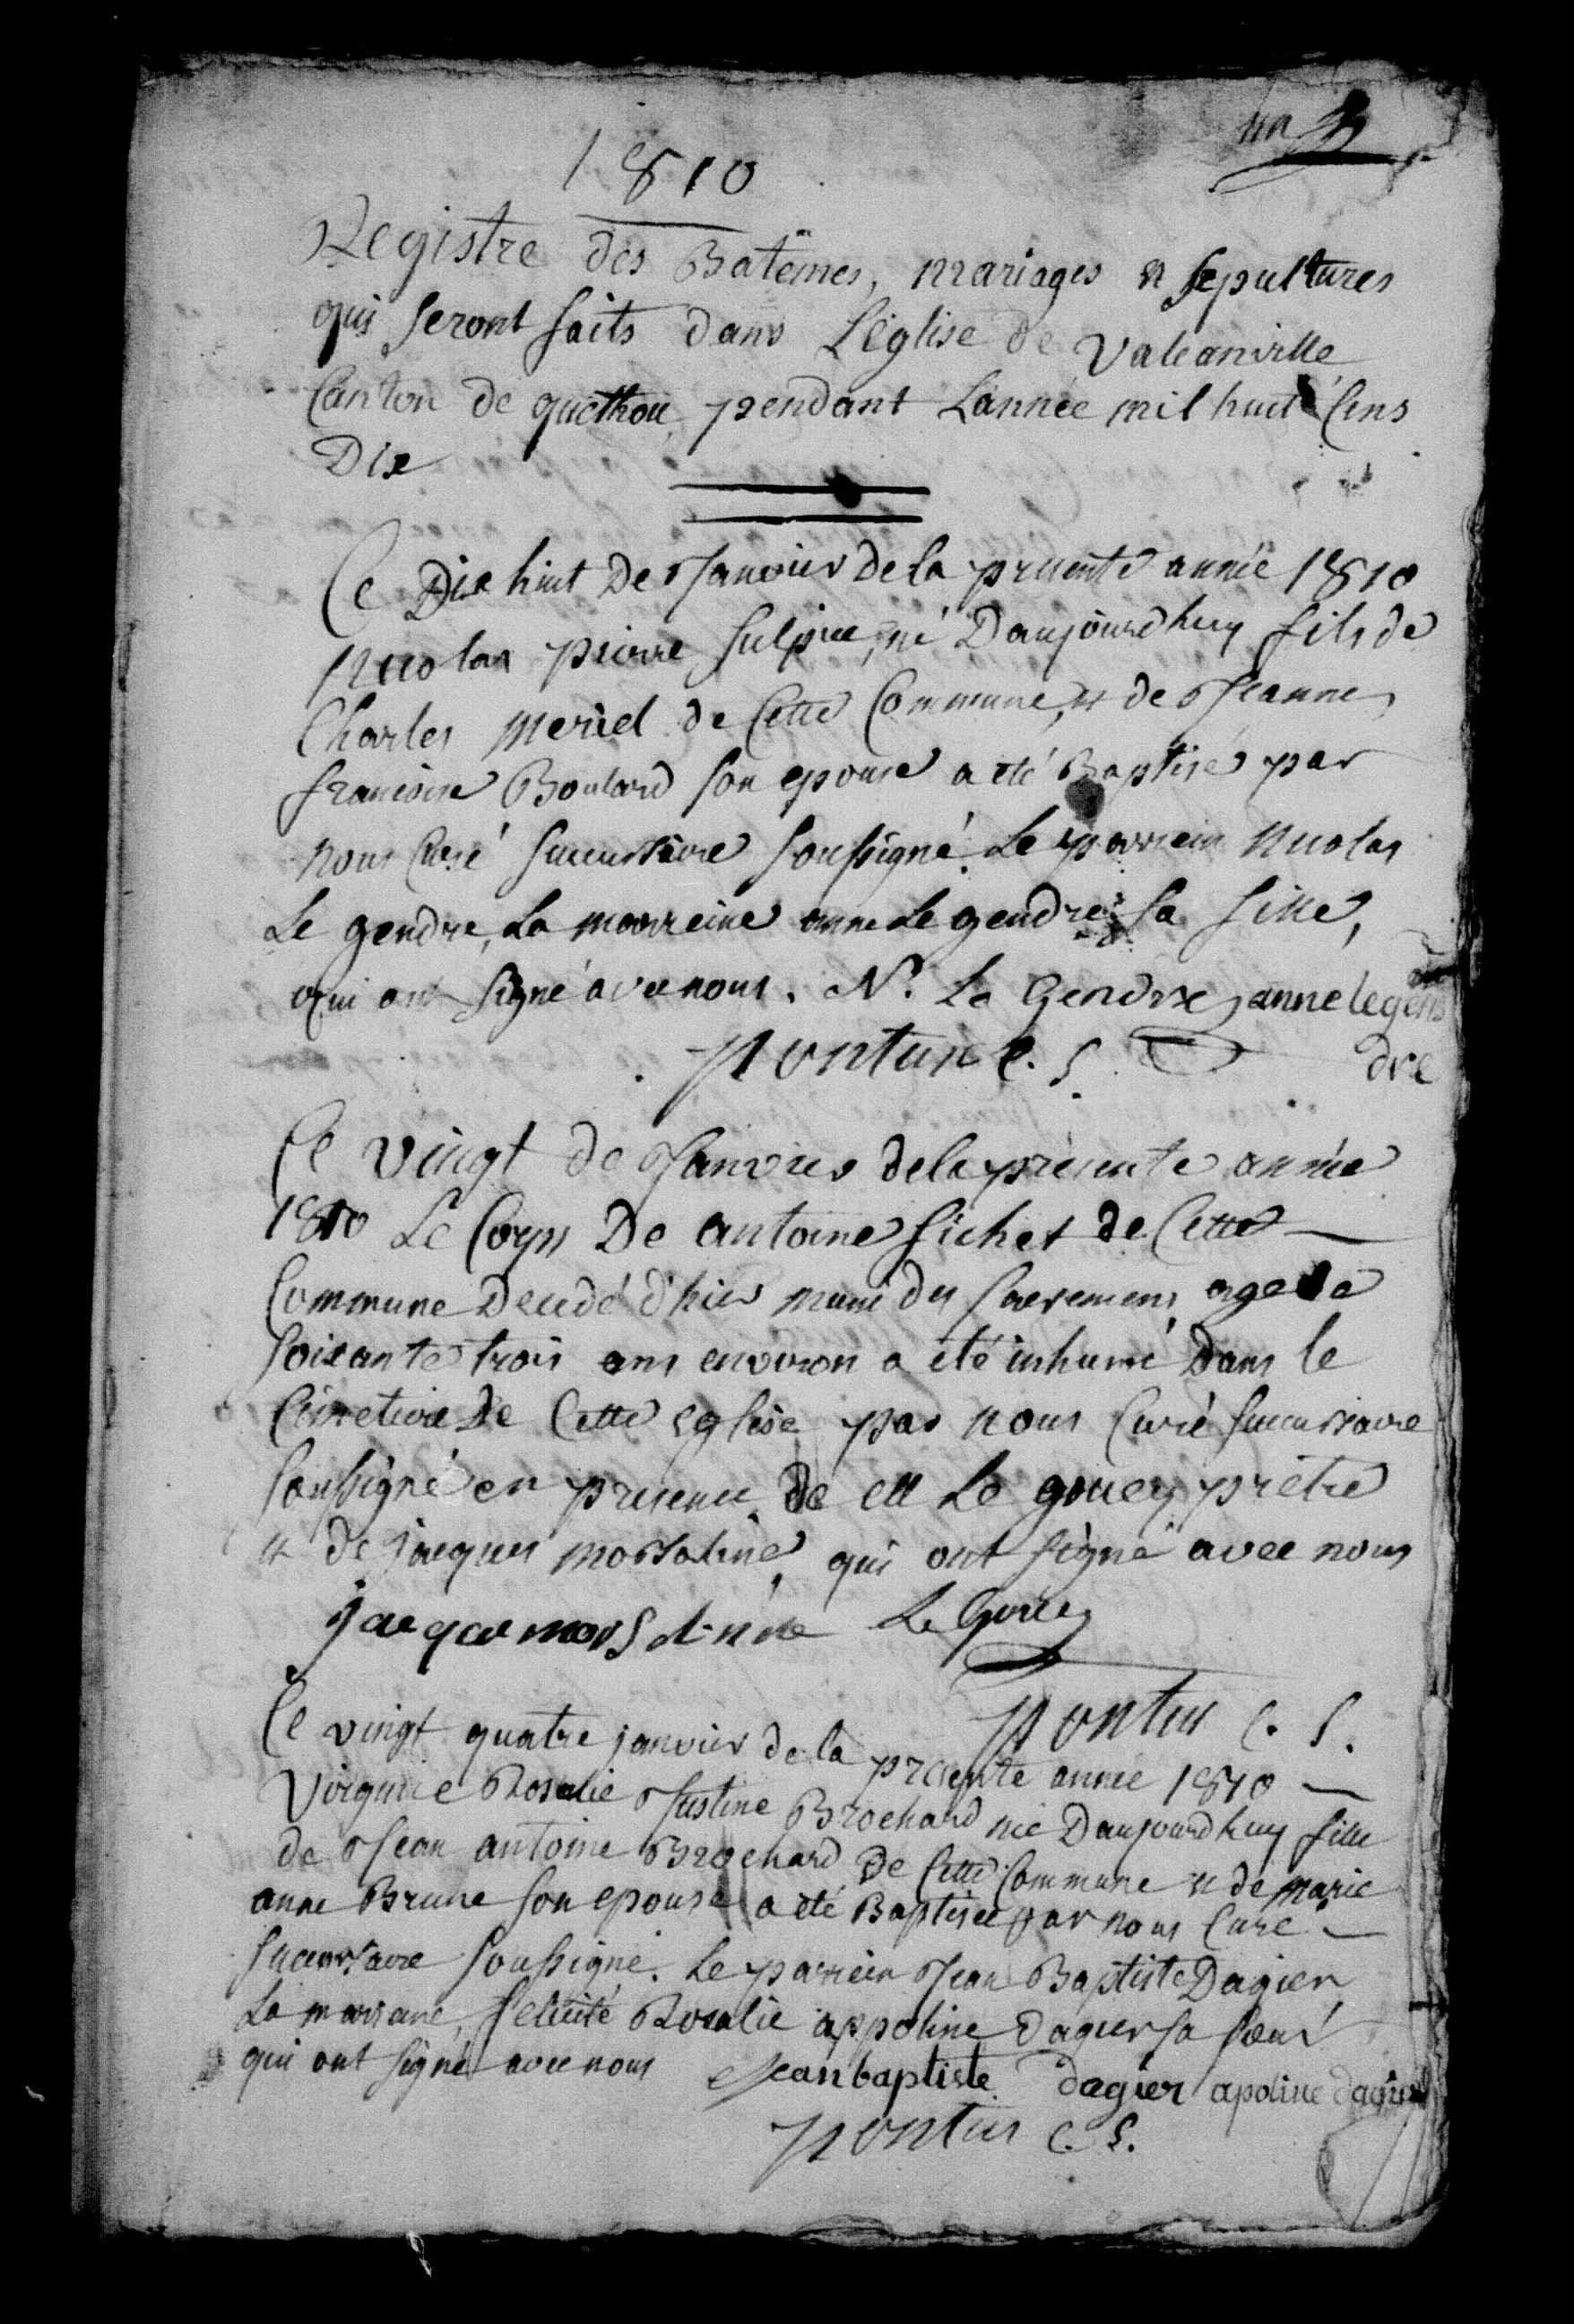 un
1810
Registre des Batêmes, mariages et sepultures
qui seront faits dans L'église de Valcanville
Canton de quethou pendant L'année mil huit Cens
Dix
Ce Dix huit De Janvier de la presente année 1810
Nicolas pierre sulpice, né D'aujourdhuy fils de
Charles Meriel de Cette Commune, et de Jeanne
francoise Boulard son epouse a eté Baptisé par
nous Curé succursaire soussigné. Le parrein Nicolas
Le gendre, La marreine anne Le gendre sa fille,
qui ont signé avec nous. N. Le Gendre anne legen
dre
pontus C. S.
Ce vingt de Janvier de la presente année
1810 Le Corps De antoine fichet de Cette
Commune Decedé d'hier muni des sacremens agé de
soixante trois ans environ a été inhumé Dans le
Cimetiere De Cette Eglise par nous Curé succursaire
soussigné en presence de M Le gouey prêtre
et de jacques morsaline, qui ont signé avec nous
jacque morsaline Le Gouey
pontus C. S.
Ce vingt quatre janvier de la presente année 1810
Virginie Rosalie Justine Brochard née D'aujourdhuy fille
de Jean antoine Brochard De Cette Commune et de Marie
anne Brune son epouse a été Baptisée par nous Curé
succursaire soussigné. Le parrein Jean Baptiste Dagier
La marraine, felicité Rosalie appoline dagier sa soeur
qui ont signé avec nous Jean baptiste dagier apoline dagier
pontus C. S.